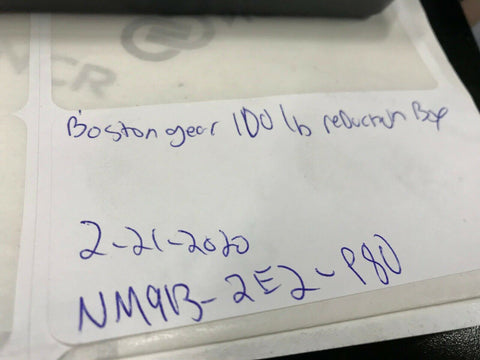 NCR
Boston gear 100 lb reduction Box
2-21-2020
NM9B-2E2-P80